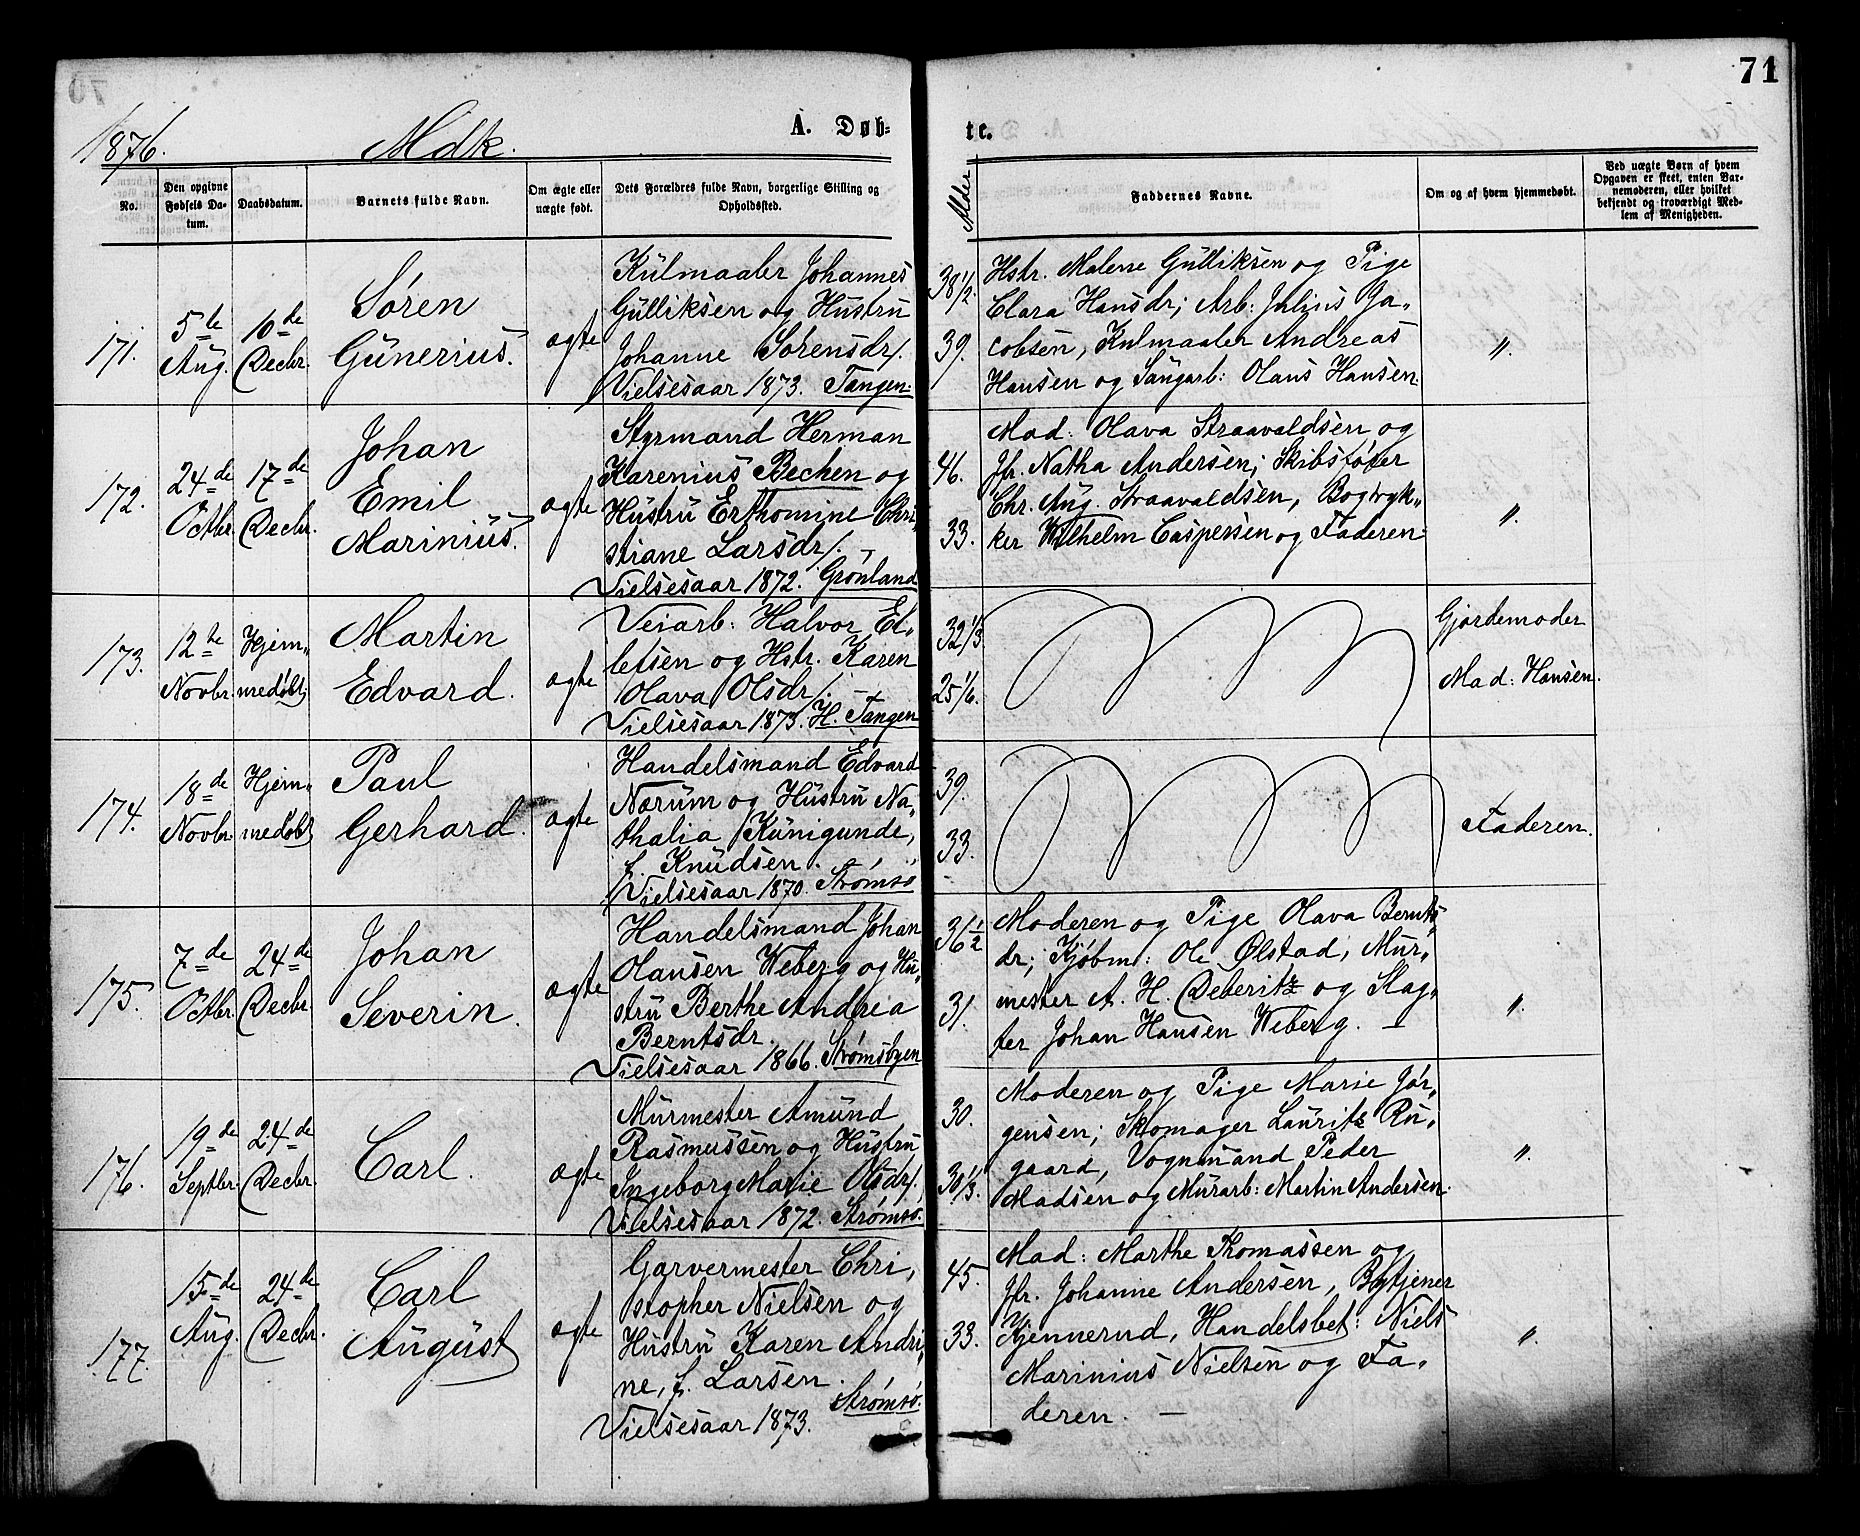 70
71
1876.
Mdk.
A. Døb-
te.
No.
Den opgivne Fødsels Da-
tum.
Daabsdatum.
Barnets fulde Navn.
Om ægte eller
uægte født.
Dets Forældres fulde Navn, borgerlige Stilling og
Opholdssted.
Alder
Faddernes Navne.
Om og af hvem hjemmedøbt.
Ved uægte Børn af hvem
Opgaven er skeet, enten Bar-
nemoderen, eller hvilket
bekjendt og troværdigt Med-
lem af Menigheden.
171.
5te
Aug.
10de
Decbr.
Søren
Günerius.
ægte
Kulmaaler Johannes
Gulliksen og Hustru
Johanne Sørensdr/.
Vielsesaar 1873. Tangen.
38 1/2.
39.
Hstr. Malene Gulliksen og Pige
Clara Hansdr; Arb: Julius Ja„
cobsen, Kulmaaler Andreas
Hansen og Saugarb: Olaus Hansen.
"
172.
24de
Octbr.
17de
Decbr.
Johan
Emil
Marinius.
ægte
Styrmand Herman
Karenius Bechen og
Hustru Erthomine Chri„
stiane Larsdr/. –
Vielsesaar 1872. Grønland
46.
33.
Mad: Olava Straavaldsen og
Jfr. Natha Andersen; Skibsfører
Chr. Aug. Straavaldsen, Bogtryk„
ker Wilhelm Caspersen og Faderen.
"
173.
12te
Novbr.
Hjem„
medøbt
Martin
Edvard.
ægte
Veiarb: Halvor El„
lefsen og Hstr. Karen
Olava Olsdr/. –
Vielsesaar 1873. H. Tangen
32 1/3
25 1/6.
Gjordemoder
Mad: Hansen.
174.
18de
Novbr.
Hjem„
medøbt
Paul
Gerhard.
ægte
Handelsmand Edvard
Nærum og Hustru Na„
thalia Künigunde,
f. Knudsen.
Vielsesaar 1870. Strømsø
39.
33.
Faderen.
175.
7de
Octbr.
24de
Decbr.
Johan
Severin.
ægte
Handelsmand Johan
Olausen Weberg og Hu„
stru Berthe Andrea
Berntsdr.
Vielsesaar 1866. Strømsbyen
36 1/2
31.
Moderen og Pige Olava Bernts„
dr; Kjøbm: Ole Ølstad, Mur„
mester A. H. Deberitz og Slag„
ter Johan Hansen Weberg. –
"
176.
19de
Septbr.
24de
Decbr.
Carl.
ægte
Murmester Amund
Rasmussen og Hustru
Ingeborg Marie Olsdr/.
Vielsesaar 1872. Strømsø.
30.
30 1/3.
Moderen og Pige Marie Jør„
gensen; Skomager Lauritz Ru„
gaard, Vognmand Peder
Madsen og Murarb: Martin Andersen.
"
177.
15de
Aug.
24de
Decbr.
Carl
August
ægte
Garvermester Chri„
stopher Nielsen og
Hustru Karen Andri„
ne, f. Larsen.
Strømsø.
Vielsesaar 1873.
45.
33.
Mad: Marthe Thomassen og
Jfr. Johanne Andersen, Bytjener
Kjennerud, Handelsbet: Niels
Marinius Nielsen og Fa„
deren. –
"